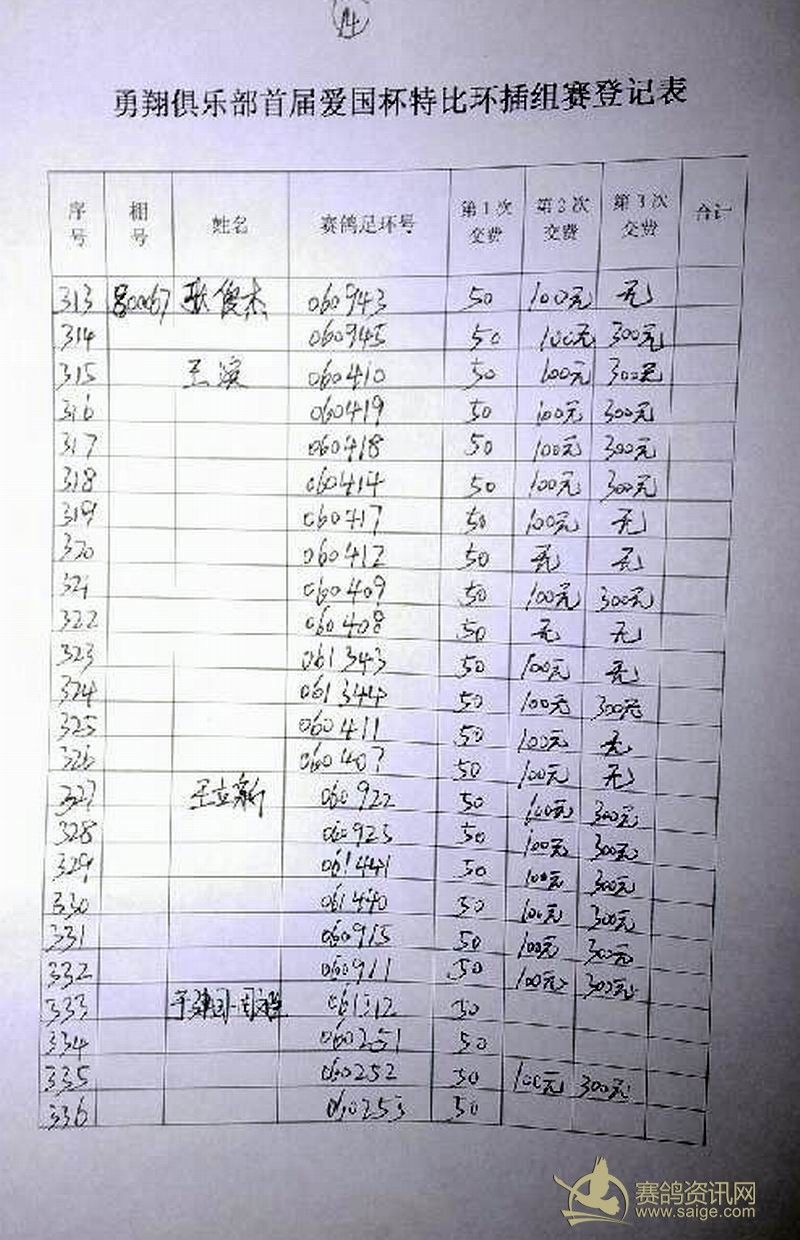 14
勇翔俱乐部首届爱国杯特比环插组赛登记表
序号 棚号 姓名 赛鸽足环号 第1次交费 第2次交费 第3次交费 合计
313 80067 耿俊杰 060943 50 100元 无
314 060945 50 100元 300元
315 王滨 060410 50 100元 300元
316 060419 50 100元 300元
317 060418 50 100元 300元
318 060414 50 100元 300元
319 060417 50 100元 无
320 060412 50 无 无
321 060409 50 100元 300元
322 060408 50 无 无
323 061343 50 100元 无
324 061344 50 100元 300元
325 060411 50 100元 无
326 060407 50 100元 无
327 王立新 060922 50 100元 300元
328 060923 50 100元 300元
329 061441 50 100元 300元
330 061440 50 100元 300元
331 060915 50 100元 300元
332 060911 50 100元 300元
333 061312 50
334 060251 50
335 060252 50 100元 300元
336 060253 50
赛鸽资讯网
www.saige.com